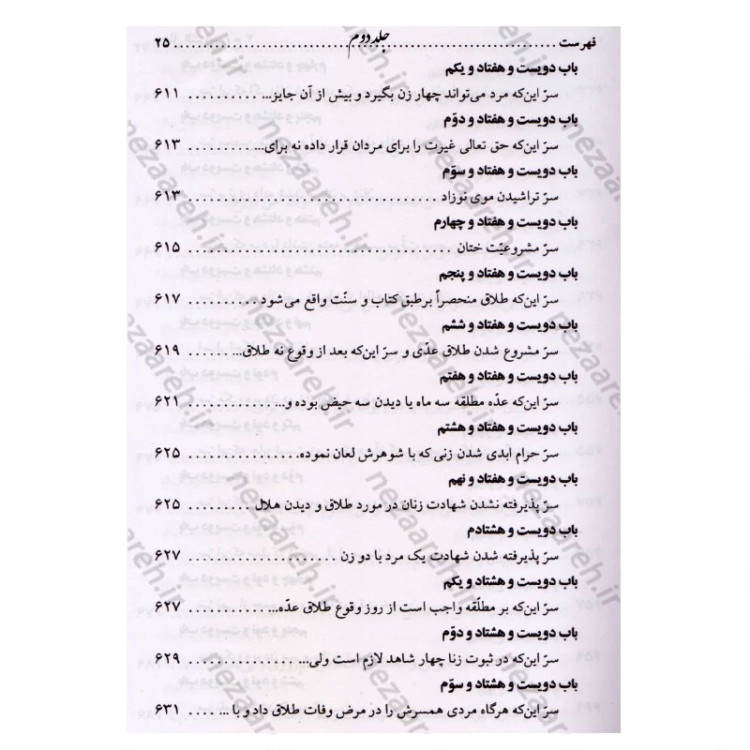 فهرست ........ جلد دوم ........ ۲۵
باب دویست و هفتاد و یکم
سرّ این‌که مرد می‌تواند چهار زن بگیرد و بیش از آن جایز... .......... ۶۱۱
باب دویست و هفتاد و دوّم
سرّ این‌که حق تعالی غیرت را برای مردان قرار داده نه برای... .......... ۶۱۳
باب دویست و هفتاد و سوّم
سرّ تراشیدن موی نوزاد .......... ۶۱۳
باب دویست و هفتاد و چهارم
سرّ مشروعیّت ختان .......... ۶۱۵
باب دویست و هفتاد و پنجم
سرّ این‌که طلاق منحصراً بر طبق کتاب و سنّت واقع می‌شود .......... ۶۱۷
باب دویست و هفتاد و ششم
سرّ مشروع شدن طلاق عدّی و سرّ این‌که بعد از وقوع نه طلاق... ...... ۶۱۹
باب دویست و هفتاد و هفتم
سرّ این‌که عدّه مطلقه سه ماه یا دیدن سه حیض بوده و... .......... ۶۲۱
باب دویست و هفتاد و هشتم
سرّ حرام ابدی شدن زنی که با شوهرش لعان نموده. .......... ۶۲۵
باب دویست و هفتاد و نهم
سرّ پذیرفته نشدن شهادت زنان در مورد طلاق و دیدن هلال .......... ۶۲۵
باب دویست و هشتادم
سرّ پذیرفته شدن شهادت یک مرد با دو زن .......... ۶۲۷
باب دویست و هشتاد و یکم
سرّ این‌که بر مطلّقه واجب است از روز وقوع طلاق عدّه... .......... ۶۲۷
باب دویست و هشتاد و دوّم
سرّ این‌که در ثبوت زنا چهار شاهد لازم است ولی... .......... ۶۲۹
باب دویست و هشتاد و سوّم
سرّ این‌که هرگاه مردی همسرش را در مرض وفات طلاق داد و با ... .... ۶۳۱
nezaareh.ir